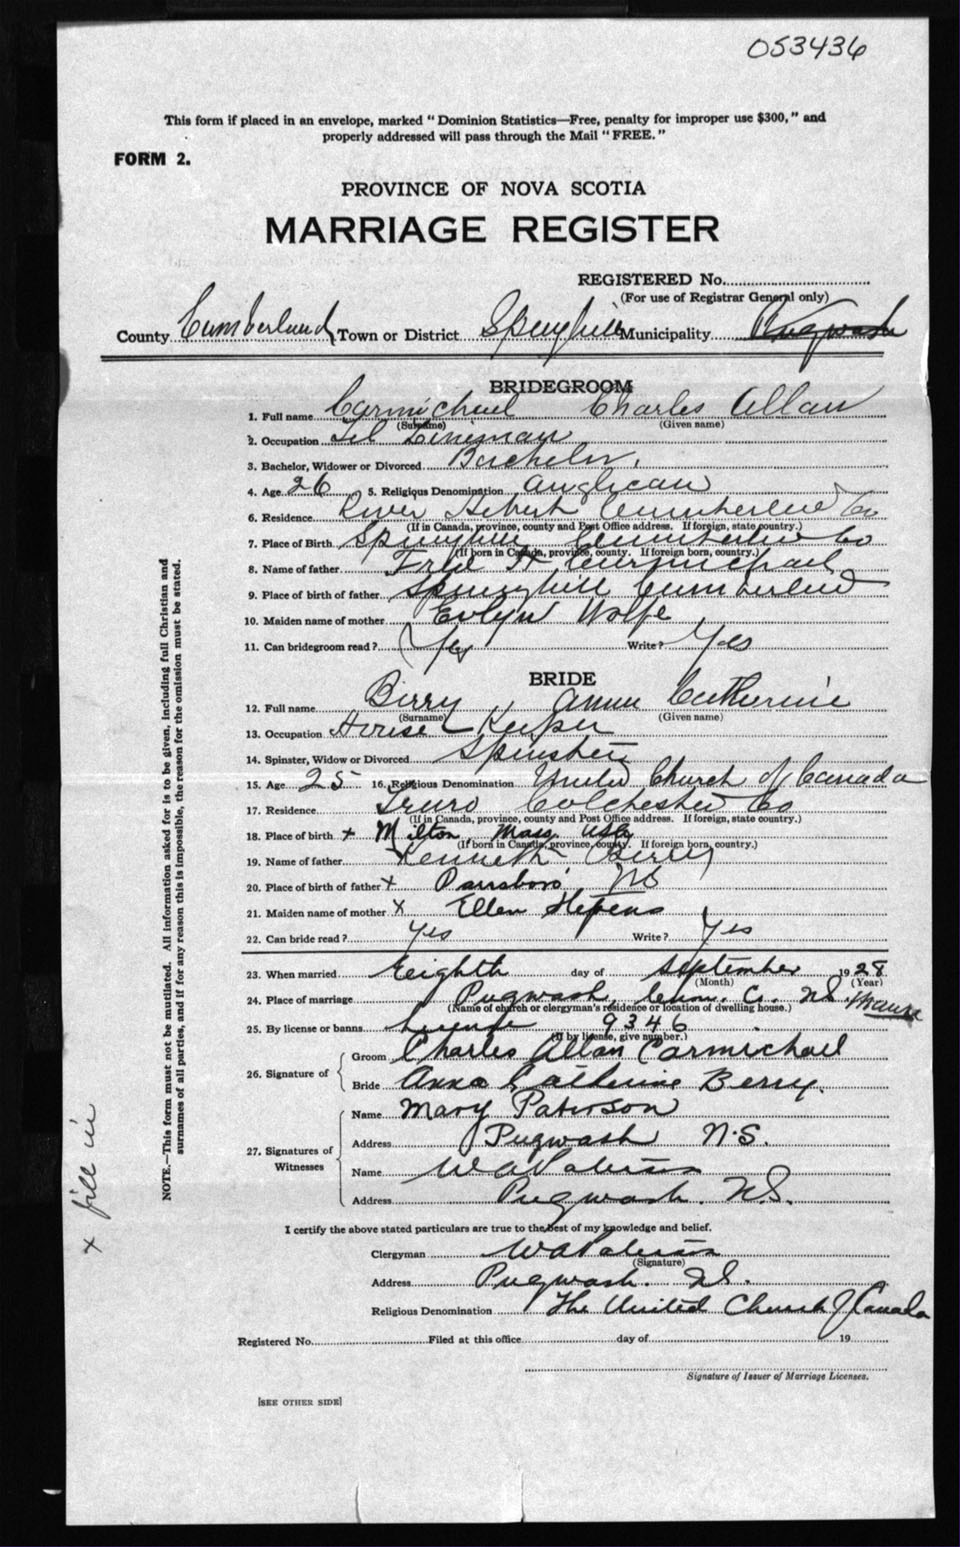 053436
This form if placed in an envelope, marked "Dominion Statistics—Free, penalty for improper use $300," and
properly addressed will pass through the Mail "FREE."
FORM 2.
PROVINCE OF NOVA SCOTIA
MARRIAGE REGISTER
REGISTERED No.
(For use of Registrar General only)
County Cumberland Town or District Springhill Municipality Pugwash
BRIDEGROOM
1. Full name Carmichael Charles Allan
(Surname) (Given name)
2. Occupation Tel Lineman
3. Bachelor, Widower or Divorced Bachelor.
4. Age 26 5. Religious Denomination Anglican
6. Residence River Hebert Cumberland Co
(If in Canada, province, county and Post Office address. If foreign, state country.)
7. Place of Birth Springhill Cumberland Co
(If born in Canada, province, county. If foreign born, country.)
8. Name of father Fred H Carmichael
9. Place of birth of father Springhill Cumberland
10. Maiden name of mother Evlyn Wolfe
11. Can bridegroom read? Yes Write? Yes
BRIDE
12. Full name Birry Anna Catherine
(Surname) (Given name)
13. Occupation House Keeper
14. Spinster, Widow or Divorced Spinster
15. Age 25 16. Religious Denomination United Church of Canada
17. Residence Truro Colchester Co
(If in Canada, province, county and Post Office address. If foreign, state country.)
18. Place of birth + Milton, Mass. USA
(If born in Canada, province, county. If foreign born, country.)
19. Name of father Kenneth Berry
20. Place of birth of father + Parrsboro NS
21. Maiden name of mother x Ellen Stepens
22. Can bride read? Yes Write? Yes
23. When married Eighth day of September 1928
(Month) (Year)
24. Place of marriage Pugwash, Cum. Co. NS. Manse
(Name of church or clergyman's residence or location of dwelling house.)
25. By license or banns License 9346
(If by license, give number.)
26. Signature of Groom Charles Allan Carmichael
Bride Anna Catherine Berry.
27. Signatures of Witnesses
Name Mary Paterson
Address Pugwash N.S.
Name W A Paterson
Address Pugwash. N.S.
I certify the above stated particulars are true to the best of my knowledge and belief.
Clergyman W A Paterson
(Signature)
Address Pugwash. N.S.
Religious Denomination The United Church of Canada
Registered No. Filed at this office day of 19
Signature of Issuer of Marriage Licenses.
[SEE OTHER SIDE]
NOTE.—This form must not be mutilated. All information asked for is to be given, including full Christian and
surnames of all parties, and if for any reason this is impossible, the reason for the omission must be stated.
x fill in